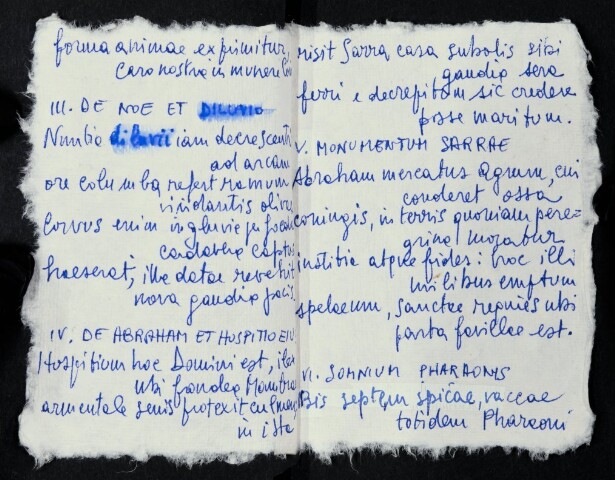 forma animae exprimitur,
caro nostra in munere
III. DE NOE ET DILUVIO
Nuntia diluvii iam decrescenti
ad arcam
ore columba refert ramum
viridantis olivae
Corvus enim ingluvie per foeda
cadavera captus
haeserat, illa datae revehit
nova gaudia pacis.
IV. DE ABRAHAM ET HOSPITIO EIUS
Hospitium hoc Domini est, ilex
ubi frondea Mambrae
armentale senis protexit culmen
in ista
risit Sarra casa subolis sibi
gaudia sera
ferri e decrepitum sic credere
posse maritum.
V. MONUMENTUM SARRAE
Abraham mercatus agrum, cui
conderet ossa
coniugis, in terris quoniam pere=
grina moratur
iustitia atque fides: hoc illi
milibus emptum
spelaeum, sanctae requies ubi
parta favillae est.
VI. SOMNIUM PHARAONIS
Bis septem spicae, vaccae
totidem Pharaoni